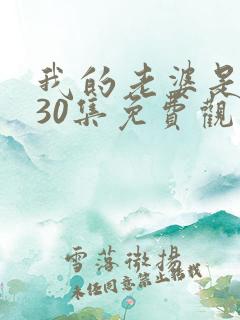 我的老婆是
30集免費觀
雪落微揚
未经同意禁止转载